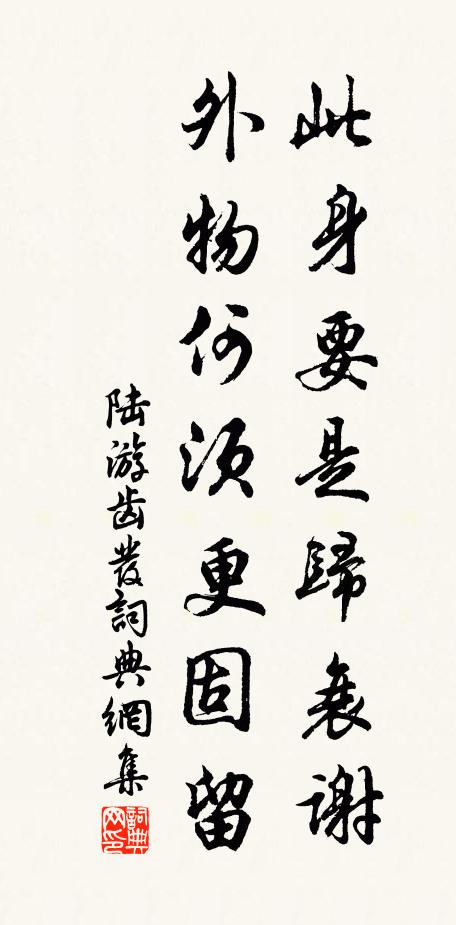 此身要是歸衰謝
外物何須更固留
陆游齿发詞典網集
詞典网印